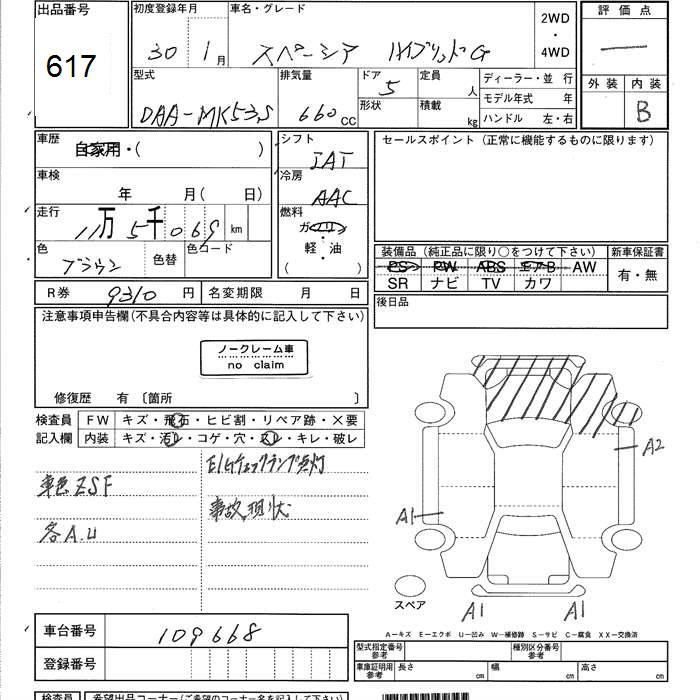 出品番号
617
初度登録年月
30年 1月
車名・グレード
スペーシア ハイブリッドG
2WD
・
4WD
評価点
—
外装 内装
B
型式
DAA-MK53S
排気量
660cc
ドア
5
形状
定員
人
積載
kg
ディーラー・並行
モデル年式 年
ハンドル 左・右
車歴
自家用・( )
車検
年 月( 日)
走行
11万5千069km
色
ブラウン
色替
色コード
シフト
IAT
冷房
AAC
燃料
ガソリン
軽・油
( )
セールスポイント(正常に機能するものに限ります)
装備品(純正品に限り○をつけて下さい)
PS PW ABS エアB AW
SR ナビ TV カワ
新車保証書
有・無
R券 9310円
名変期限 月 日
後日品
注意事項申告欄(不具合内容等は具体的に記入して下さい)
ノークレーム車
no claim
修復歴 有〔箇所 〕
検査員
記入欄
FW キズ・飛石・ヒビ割・リペア跡・X要
内装 キズ・汚レ・コゲ・穴・スレ・キレ・破レ
E/Gチェックランプ点灯
車色ZSF
事故現状
各A.U
A2
A1
スペア
A1
A1
A-キズ E-エクボ U-凹み W-補修跡 S-サビ C-腐食 XX-交換済
車台番号 109668
登録番号
型式指定番号
参考
種別区分番号
参考
車庫証明用
参考
長さ cm
幅 cm
高さ cm
検査員
希望出品コーナー(ご希望のコーナー名を記入下さい)